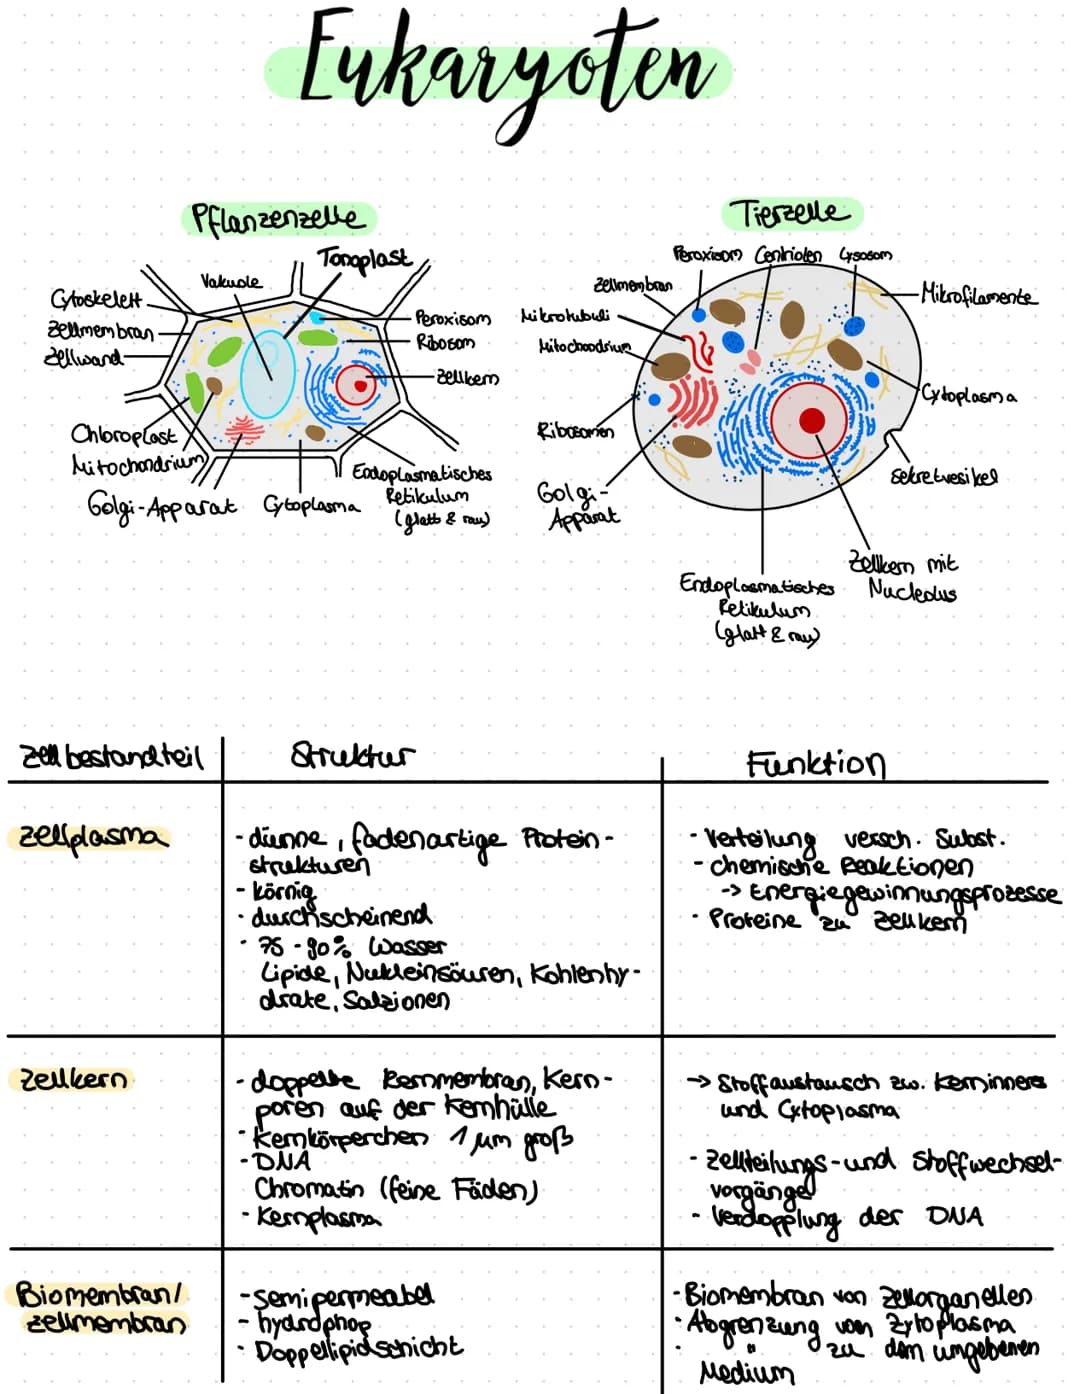 Eukaryoten
Pflanzenzelle
Tonoplast
Vakuole
Cytoskelett
Zellmembran
Zellwand
Peroxisom
Ribosom
Zellkern
Chloroplast
Mitochondrium
Golgi-Apparat
Cytoplasma
Endoplasmatisches
Retikulum
(glatt & rau)
Tierzelle
Peroxisom Centriolen Lysosom
Zellmembran
Mikrotubuli
Mitochondrium
Mikrofilamente
Cytoplasma
Ribosomen
Sekretvesikel
Golgi-
Apparat
Zellkern mit
Nucleolus
Endoplasmatisches
Retikulum
(glatt & rau)
Zellbestandteil
Struktur
Funktion
Zellplasma
- dünne, fadenartige Protein-
strukturen
- körnig
- durchscheinend
- 75-90% Wasser
Lipide, Nukleinsäuren, Kohlenhy-
drate, Salzionen
- Verteilung versch. Subst.
- chemische Reaktionen
-> Energiegewinnungsprozesse
- Proteine zu Zellkern
Zellkern
- doppelte Kernmembran, Kern-
poren auf der Kernhülle
- Kernkörperchen 1 µm groß
- DNA
Chromatin (feine Fäden)
- Kernplasma
-> Stoffaustausch zw. Kerninneres
und Cytoplasma
- Zellteilungs- und Stoffwechsel-
vorgänge
- Verdopplung der DNA
Biomembran/
Zellmembran
- semipermeabel
- hydrophop
- Doppellipidschicht
- Biomembran von Zellorganellen
- Abgrenzung vom Zytoplasma
- " zu dem umgebenen
Medium